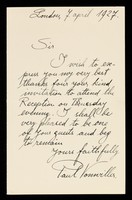 London, 7 april 1927.
Sir
I wish to ex-
press you my very best
thanks for your kind
invitation to attend the
Reception on Thursday
evening. I shall be
very pleased to be one
of your guests and beg
to remain
Yours faithfully
Paul